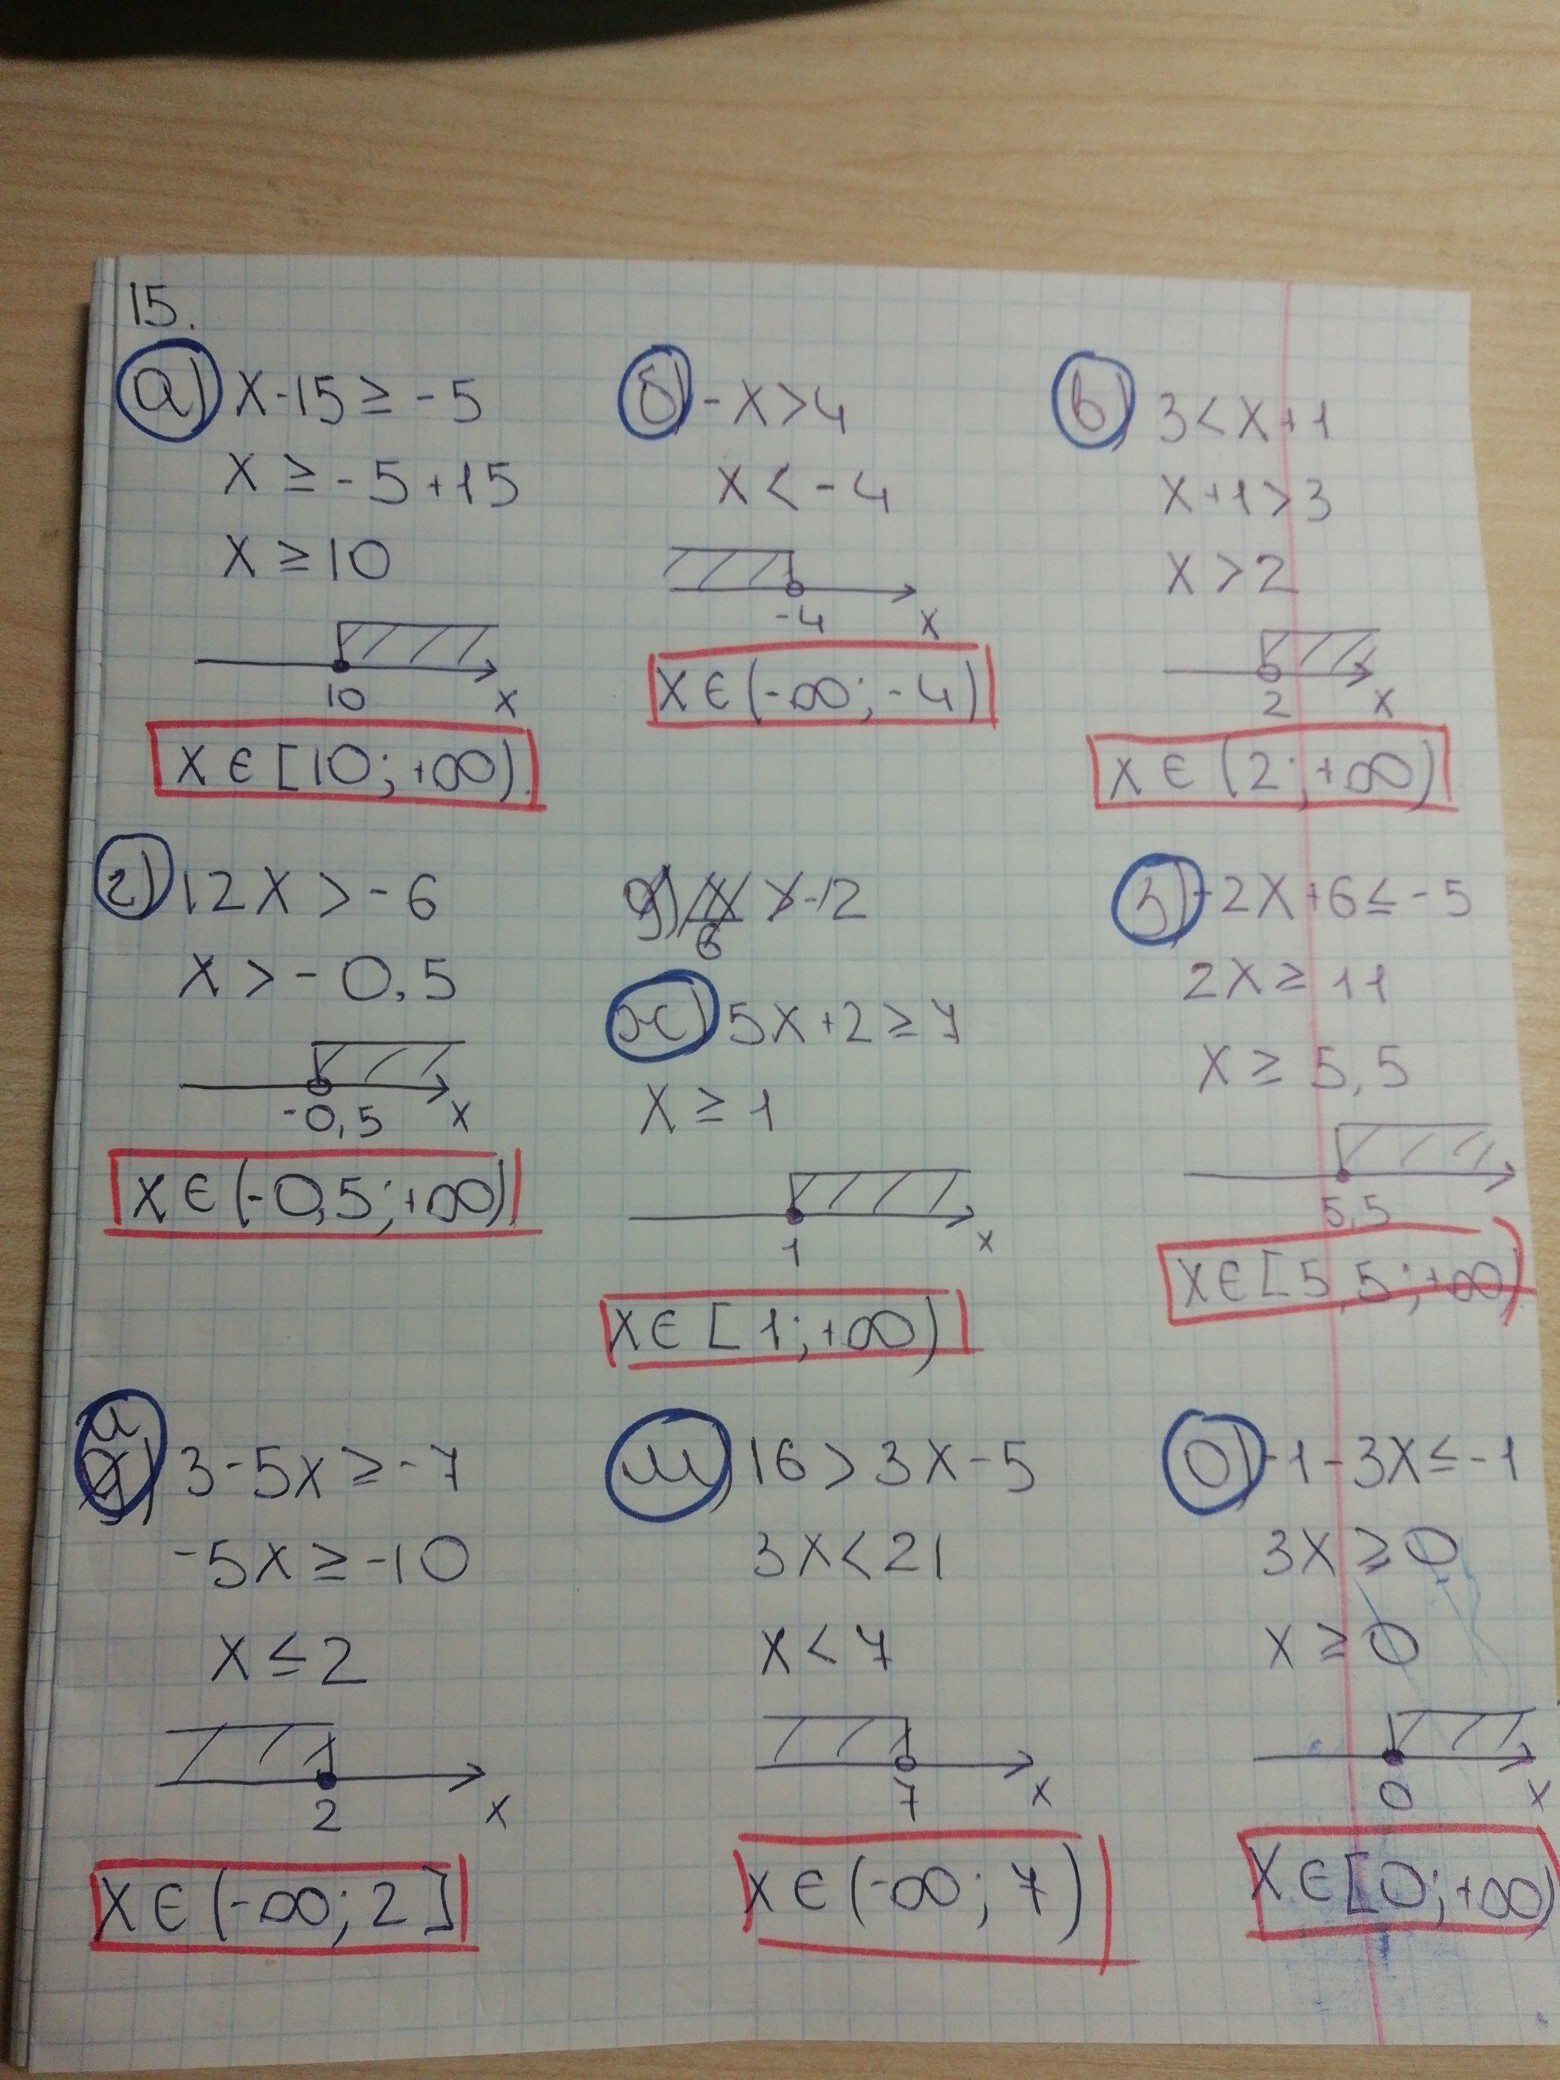 15.
а) x-15≥-5
x≥-5+15
x≥10
10 x
x∈[10;+∞)
б) -x>4
x<-4
-4 x
x∈(-∞;-4)
в) 3<x+1
x+1>3
x>2
2 x
x∈(2;+∞)
г) 12x>-6
x>-0,5
-0,5 x
x∈(-0,5;+∞)
ж) 5x+2≥7
x≥1
1 x
x∈[1;+∞)
з) -2x+6≤-5
2x≥11
x≥5,5
5,5
x∈[5,5;+∞)
и) 3-5x≥-7
-5x≥-10
x≤2
2 x
x∈(-∞;2]
м) 16>3x-5
3x<21
x<7
7 x
x∈(-∞;7)
о) -1-3x≤-1
3x≥0
x≥0
0 x
x∈[0;+∞)